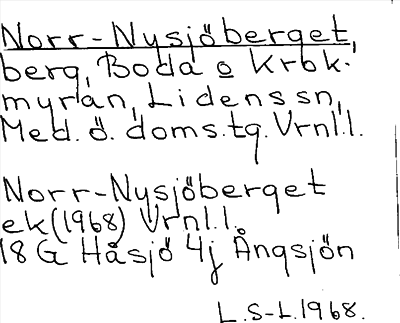 Norr-Nysjöberget,
berg, Boda o Krok-
myran, Lidens sn,
Med. ö. doms.tg. Vrnl.l.
Norr-Nysjöberget
ek(1968) Vrnl.l.
18 G Håsjö 4j Ångsjön
L.S-L.1968.